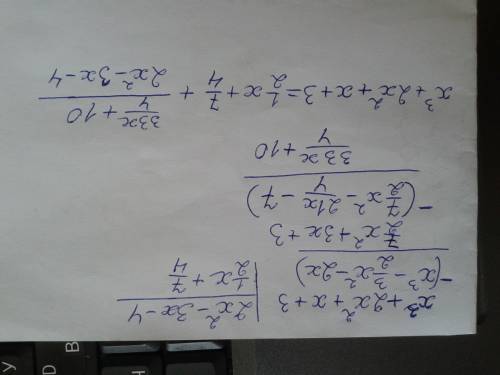 x³+2x²+x+3 | 2x²-3x-4
-(x³-3/2x²-2x) | 1/2x+7/4
7/2x²+3x+3
-(7/2x²-21x/4-7)
33x/4+10
x³+2x²+x+3=1/2x+7/4+(33x/4+10)/(2x²-3x-4)